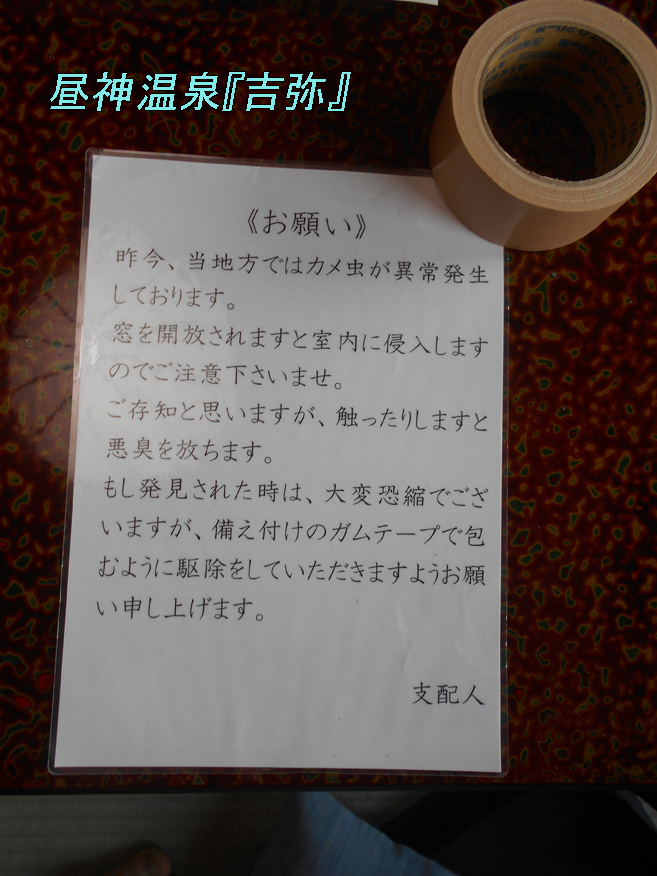 昼神温泉『吉弥』
《お願い》
昨今、当地方ではカメ虫が異常発生
しております。
窓を開放されますと室内に侵入します
のでご注意下さいませ。
ご存知と思いますが、触ったりしますと
悪臭を放ちます。
もし発見された時は、大変恐縮でござ
いますが、備え付けのガムテープで包
むように駆除をしていただきますようお願
い申し上げます。
支配人